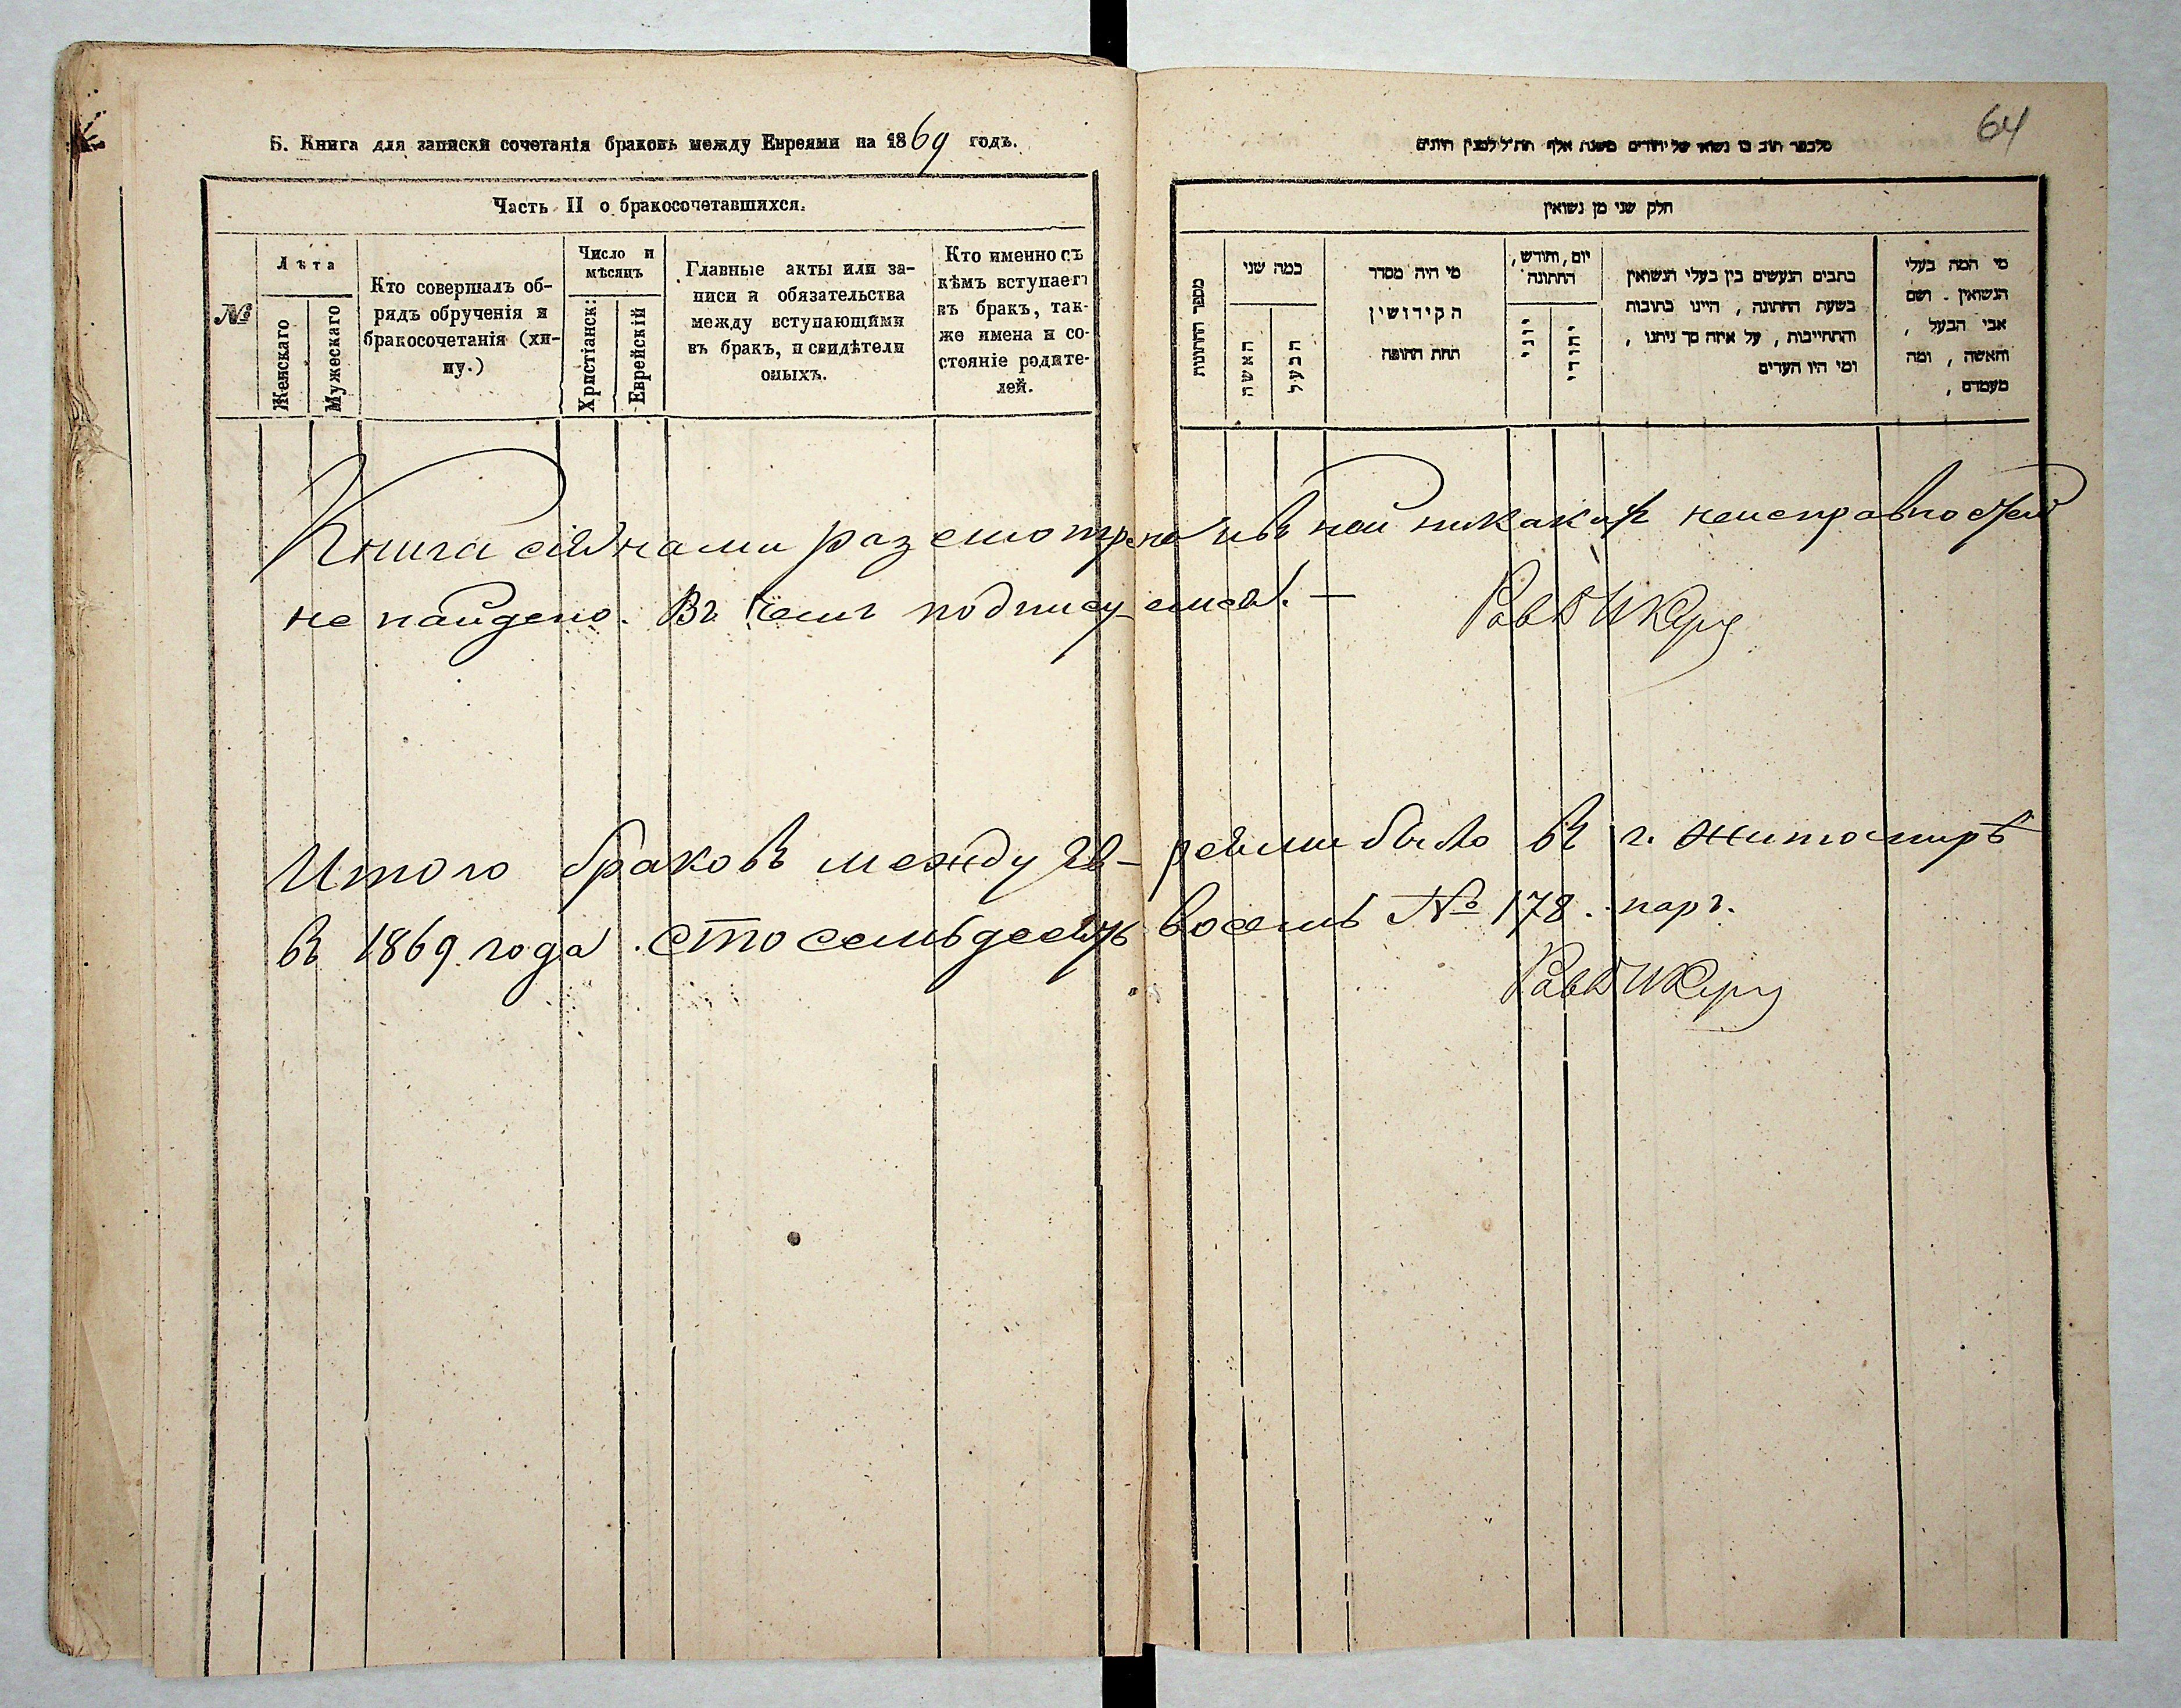 Б. Книга для записки сочетанія браковъ между Евреями на 1869 годъ.
Часть II о бракосочетавшихся.
№
Лѣта
Женскаго
Мужескаго
Кто совершалъ об-
рядъ обрученія и
бракосочетанія (хи-
пу.)
Число и
мѣсяцъ
Христіанск:
Еврейскій
Главные акты или за-
писи и обязательства
между вступающими
въ бракъ, и свидѣтели
оныхъ.
Кто именно съ
кѣмъ вступаетъ
въ бракъ, так-
же имена и со-
стояніе родите-
лей.
64
חלק שני מן נשואין
מספר החתונות
כמה שני
האשה
הבעל
מי היה מסדר
הקידושין
תחת החופה
יום, וחודש,
החתונה
יוני
יהודי
כתבים הנעשים בין בעלי הנשואין
בשעת החתונה, היינו כתובות
והתחייבות, על איזה סך ניתנו,
ומי היו העדים
מי המה בעלי
הנשואין. ושם
אבי הבעל,
והאשה, ומה
מעמדם,
Книга сія нами разсмотрена и въ ней никакихъ неисправностей
не найдено. Въ чемъ подписуемся. —
Итого браковъ между Ев-реями было въ г. Житомирѣ
въ 1869 года. сто семьдесять восемь № 178. паръ.